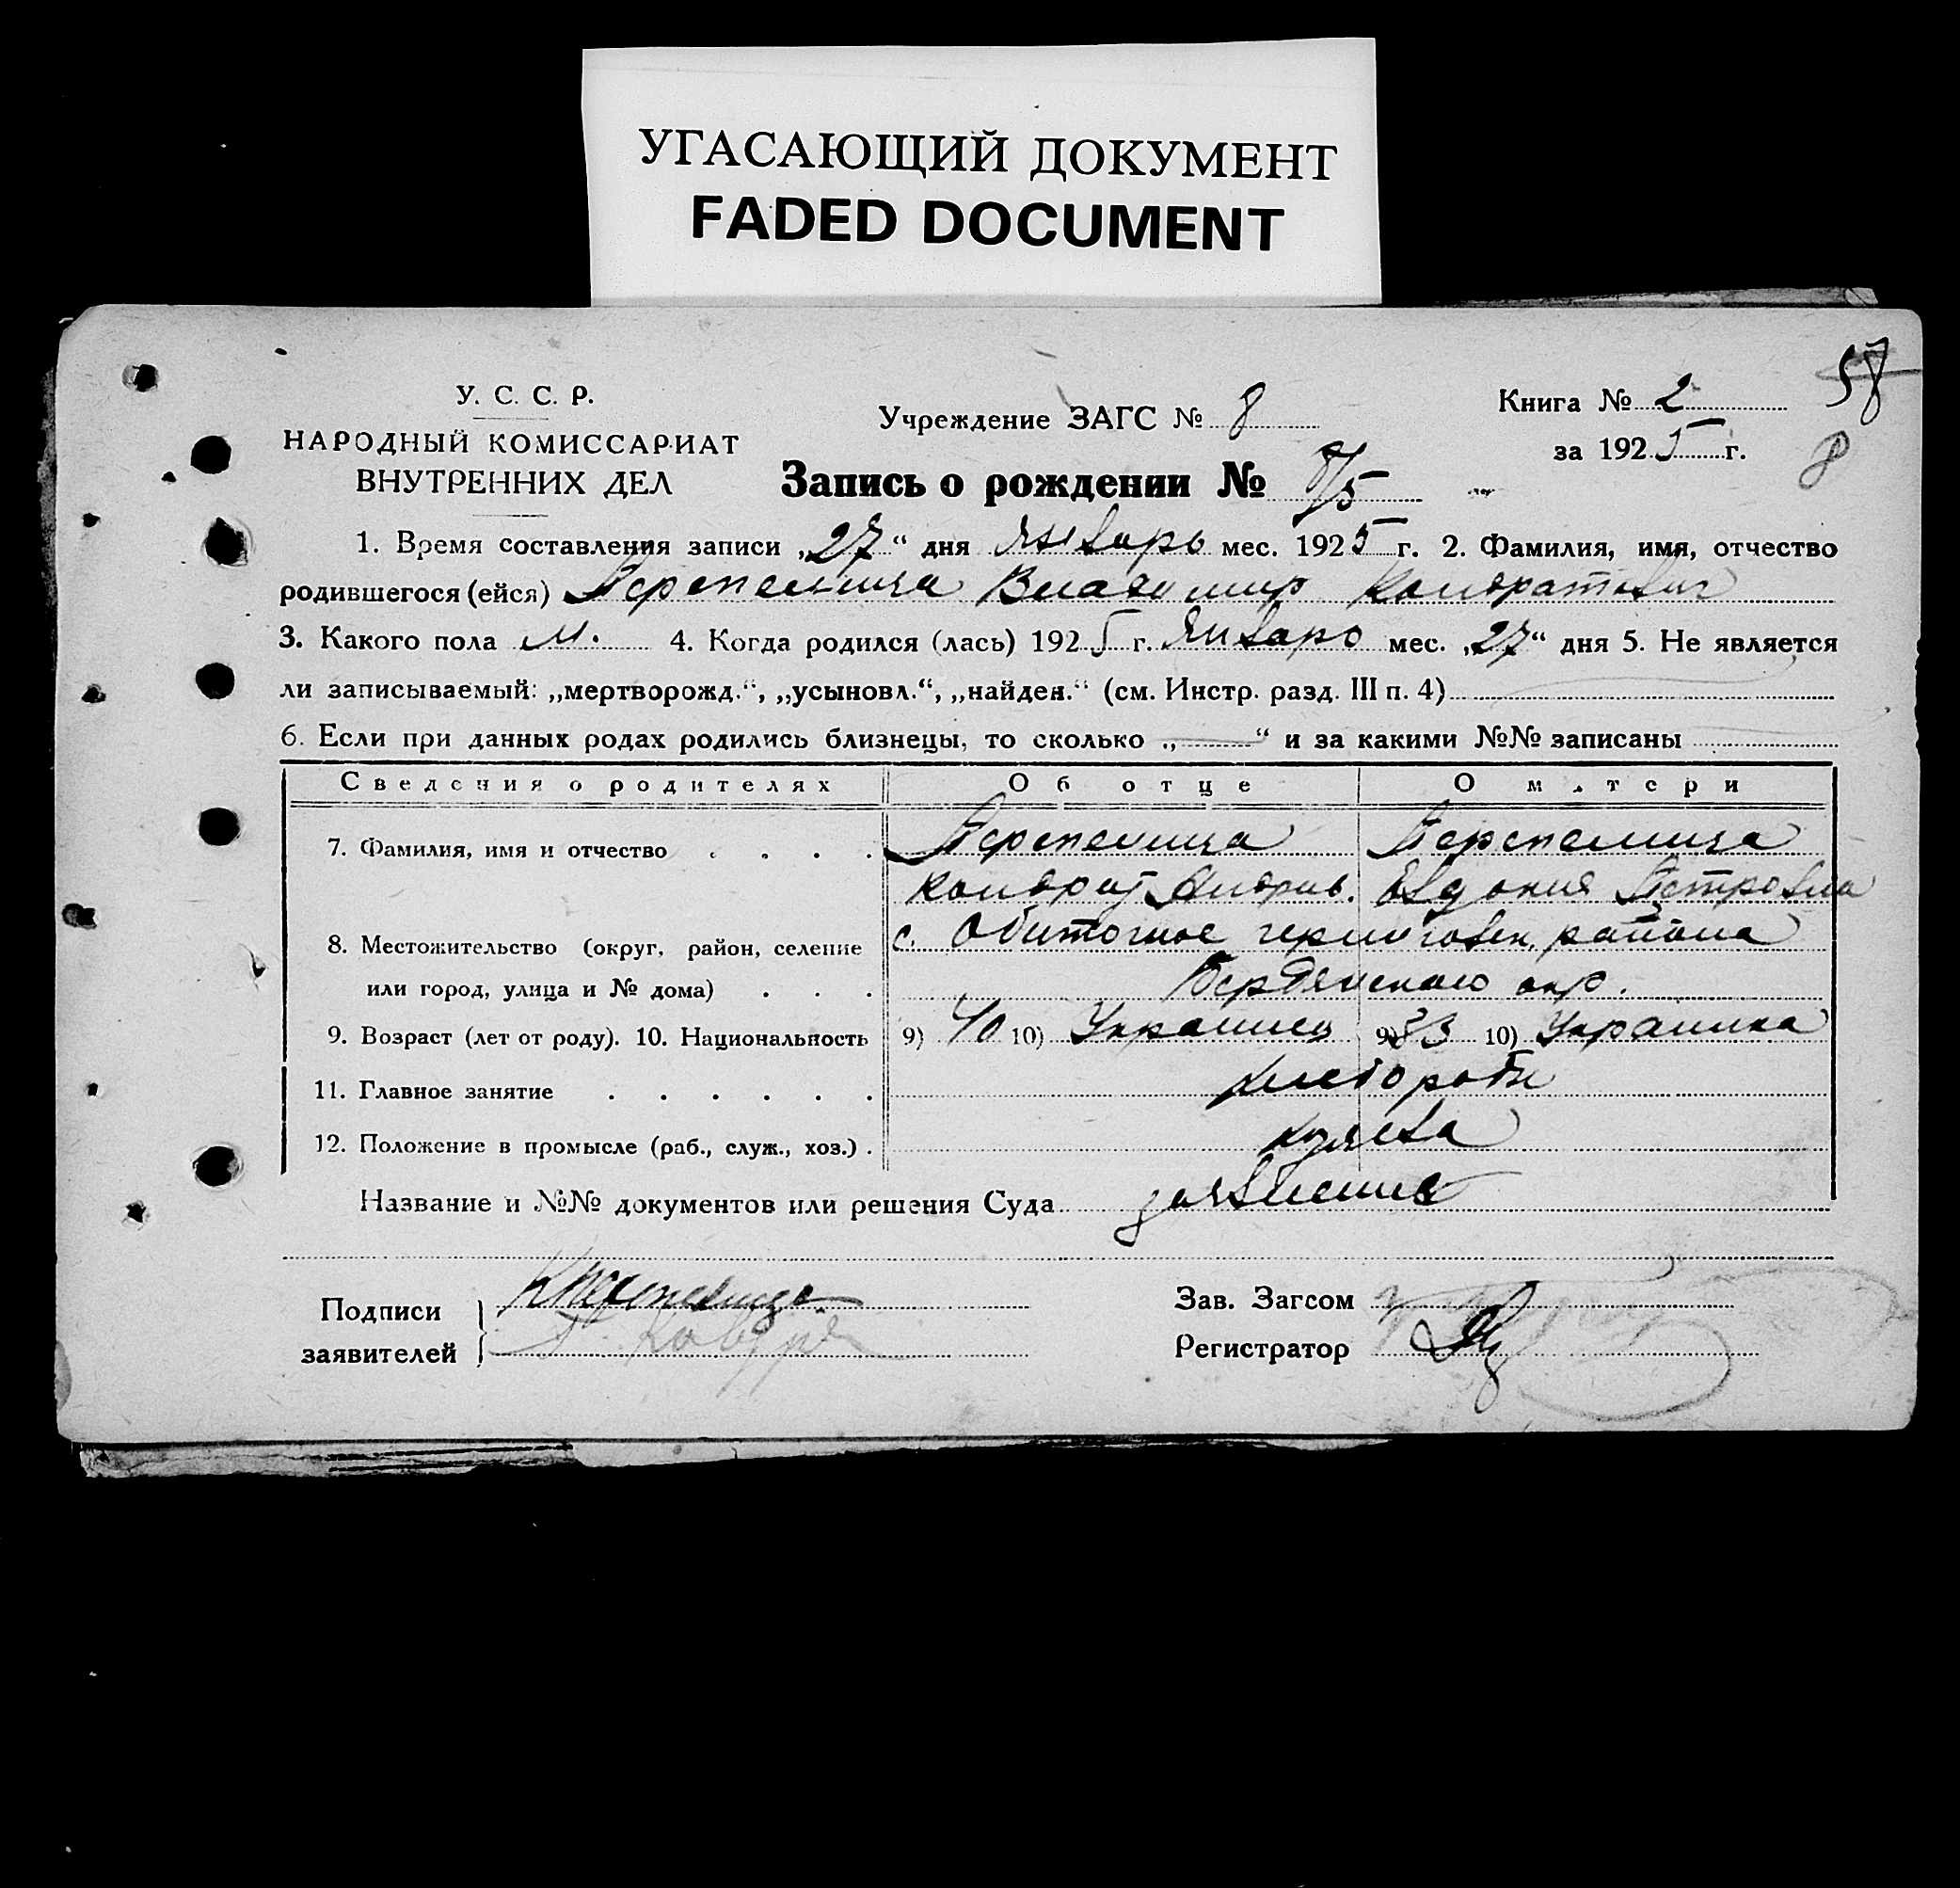 УГАСАЮЩИЙ ДОКУМЕНТ
FADED DOCUMENT
58
8
У. С. С. Р.
НАРОДНЫЙ КОМИССАРИАТ
ВНУТРЕННИХ ДЕЛ
Учреждение ЗАГС № 8
Книга № 2
за 1925 г.
Запись о рождении № 8/5
1. Время составления записи „27“ дня Январь мес. 1925 г. 2. Фамилия, имя, отчество
родившегося (ейся) Перепелица Владимир Кондратович
3. Какого пола м. 4. Когда родился (лась) 1925 г. Январь мес. „27“ дня 5. Не является
ли записываемый: „мертворожд.“, „усыновл.“, „найден.“ (см. Инстр. разд. III п. 4)
6. Если при данных родах родились близнецы, то сколько „—“ и за какими №№ записаны
Сведения о родителях Об отце О матери
7. Фамилия, имя и отчество . . . . Перепелица Перепелица
Кондрат Андрив. Евдокия Петровна
8. Местожительство (округ, район, селение с. Обиточное черниговск. района
или город, улица и № дома) . . . Бердянского окр.
9. Возраст (лет от роду). 10. Национальность 9) 40 10) Украинец 9) 33 10) Украинка
11. Главное занятие . . . . . . хлебороб
12. Положение в промысле (раб., служ., хоз.) . хозяева
Название и №№ документов или решения Суда заявление
Подписи К Перепелица
заявителей
Зав. Загсом
Регистратор